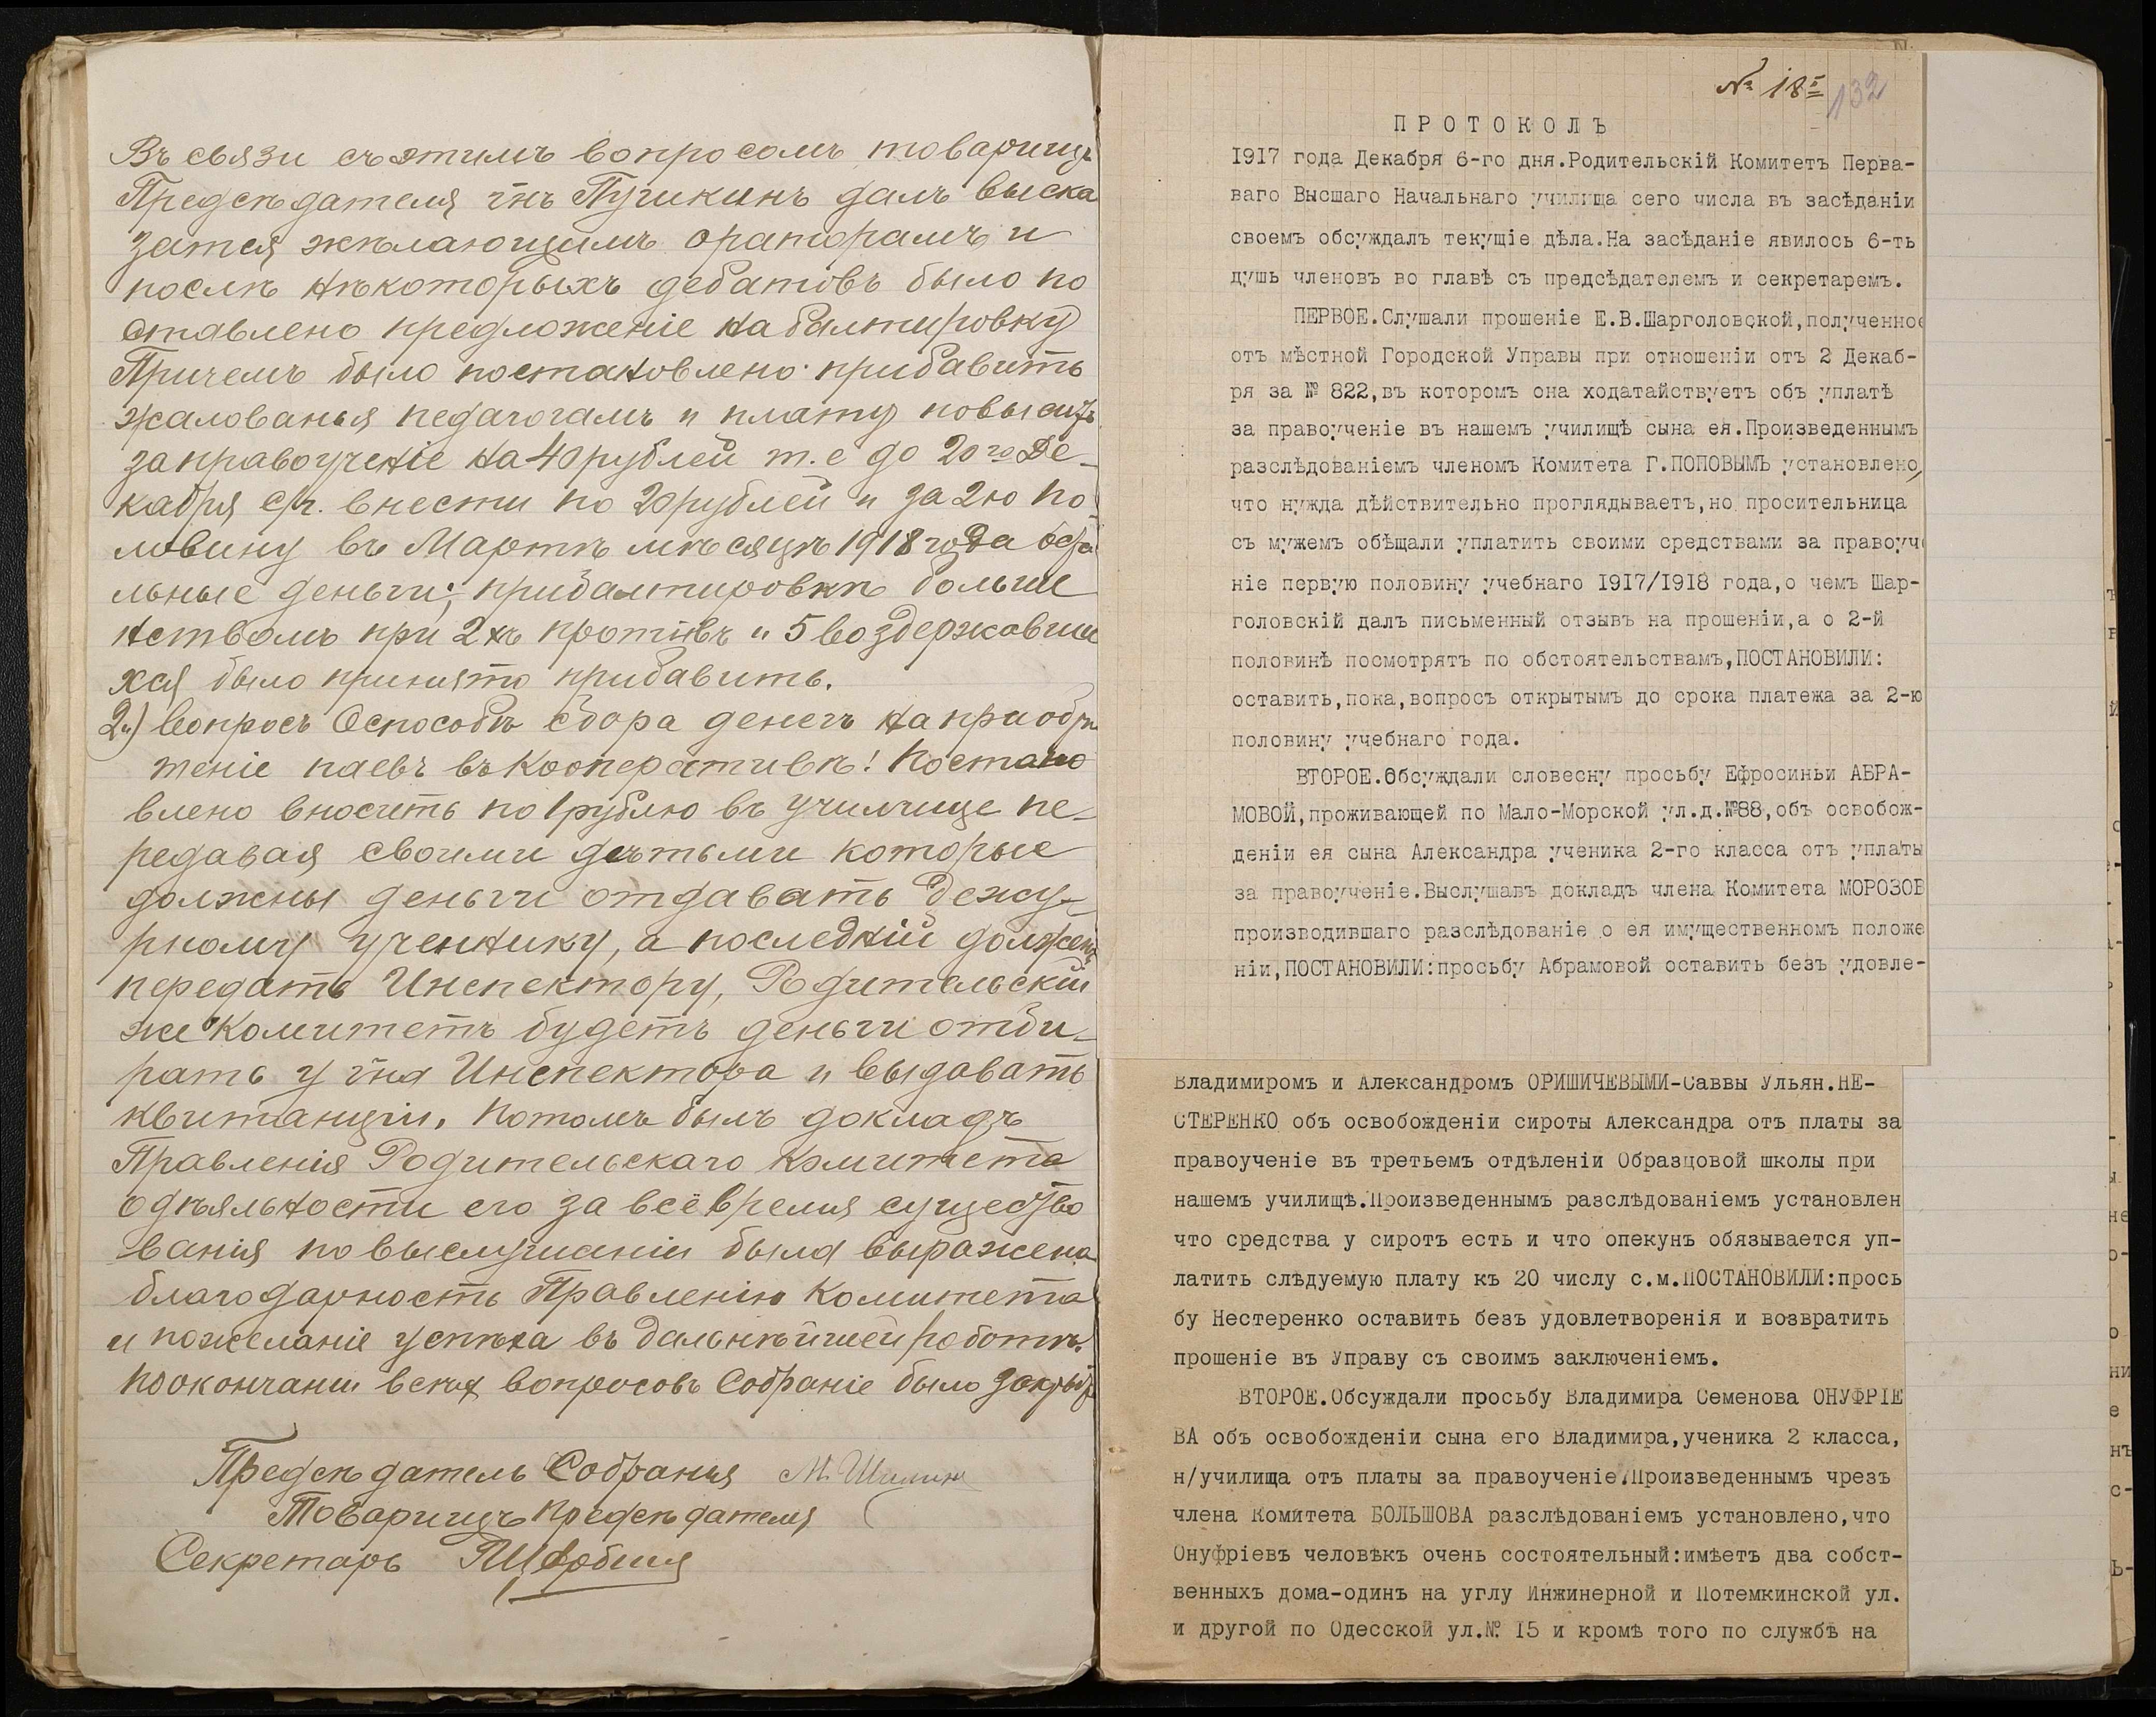 Въ связи съ этимъ вопросомъ товарищъ
Предсѣдателя г҃нъ Пушкинъ далъ выска
затся жѣлающимъ ораторамъ и
послѣ нѣкоторыхъ дебатовъ было по
ставлено предложеніе на балтировку
Причемъ было постановлено прибавить
жалованья педагогамъ и плату повысить
за правоученіе на 40 рублей т.е до 20го Де-
кабря с/г. внести по 20 рублей и за 2ю по-
ловину въ Мартѣ мѣсяцѣ 1918 года оста
льные деньги; прибалтировкѣ больши
нствомъ при 2хъ противъ и 5 воздержавши
хся было принято прибавить.
2) Вопросъ О способѣ сбора денегъ на приобрѣ
теніе паевъ въ Кооперативѣ! Постано
влено вносить по 1 рублю въ училище пе-
редавая своими дѣтьми которые
должны деньги отдавать Дежу-
рному ученику, а последній долженъ
передать Инспектору, Родительскій
же Комитетъ будетъ деньги отби-
рать у г҃на Инспектора и выдавать
квитанціи. Потомъ былъ докладъ
Правленія Родительскаго Комитета
о дѣяльности его за всё время существо
ванія по выслушаніи была выражена
благодарность Правленію Комитета
и пожеланіе успѣха въ дальнѣйшей работѣ.
По окончании всѣхъ вопросовъ Собраніе было закрыто
Предсѣдатель Собранья М. Шилин
Товарищъ предсѣдателя
Секретарь
№ 18
132
ПРОТОКОЛЪ
1917 года Декабря 6-го дня.Родительскій Комитетъ Перва-
ваго Высшаго Начальнаго училища сего числа въ засѣданіи
своемъ обсуждалъ текущіе дѣла.На засѣданіе явилось 6-ть
душь членовъ во главѣ съ предсѣдателемъ и секретаремъ.
ПЕРВОЕ.Слушали прошеніе Е.В.Шарголовской,полученное
отъ мѣстной Городской Управы при отношеніи отъ 2 Декаб-
ря за № 822,въ которомъ она ходатайствуетъ объ уплатѣ
за правоученіе въ нашемъ училищѣ сына ея.Произведеннымъ
разслѣдованіемъ членомъ Комитета Г.ПОПОВЫМЪ установлено,
что нужда дѣйствительно проглядываетъ,но просительница
съ мужемъ обѣщали уплатить своими средствами за правоуче
ніе первую половину учебнаго 1917/1918 года,о чемъ Шар-
головскій далъ письменный отзывъ на прошеніи,а о 2-й
половинѣ посмотрятъ по обстоятельствамъ,ПОСТАНОВИЛИ:
оставить,пока,вопросъ открытымъ до срока платежа за 2-ю
половину учебнаго года.
ВТОРОЕ.Обсуждали словесну просьбу Ефросиньи АБРА-
МОВОЙ,проживающей по Мало-Морской ул.д.№88,объ освобож-
деніи ея сына Александра ученика 2-го класса отъ уплаты
за правоученіе.Выслушавъ докладъ члена Комитета МОРОЗОВ
производившаго разслѣдованіе о ея имущественномъ положе
ніи,ПОСТАНОВИЛИ:просьбу Абрамовой оставить безъ удовле-
Владимиромъ и Александромъ ОРИШИЧЕВЫМИ-Саввы Ульян.НЕ-
СТЕРЕНКО объ освобожденіи сироты Александра отъ платы за
правоученіе въ третьемъ отдѣленіи Образцовой школы при
нашемъ училищѣ.Произведеннымъ разслѣдованіемъ установлен
что средства у сиротъ есть и что опекунъ обязывается уп-
латить слѣдуемую плату къ 20 числу с.м.ПОСТАНОВИЛИ:прось
бу Нестеренко оставить безъ удовлетворенія и возвратить
прошеніе въ Управу съ своимъ заключеніемъ.
ВТОРОЕ.Обсуждали просьбу Владимира Семенова ОНУФРІЕ
ВА объ освобожденіи сына его Владимира,ученика 2 класса,
н/училища отъ платы за правоученіе.Произведеннымъ чрезъ
члена Комитета БОЛЬШОВА разслѣдованіемъ установлено,что
Онуфріевъ человѣкъ очень состоятельный:имѣетъ два собст-
венныхъ дома-одинъ на углу Инжинерной и Потемкинской ул.
и другой по Одесской ул.№ 15 и кромѣ того по службѣ на